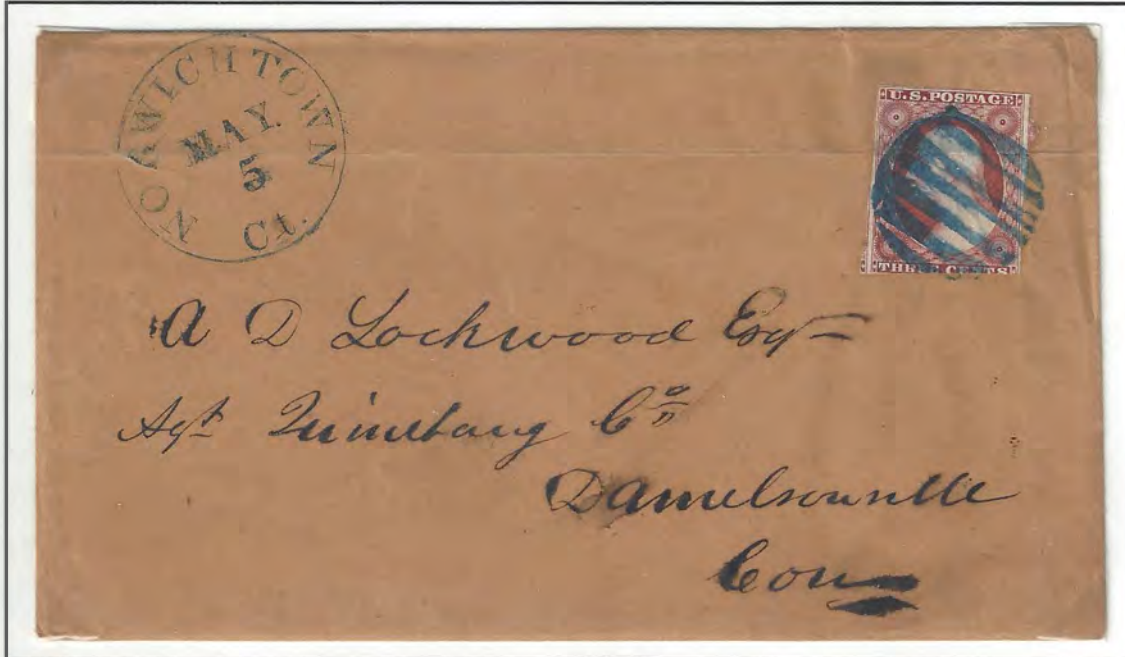 NORWICHTOWN
MAY.
5
Ct.
U.S.POSTAGE
THREE CENTS
A D Lockwood Esq
Agt Quinebaug Co
Danielsonville
Con